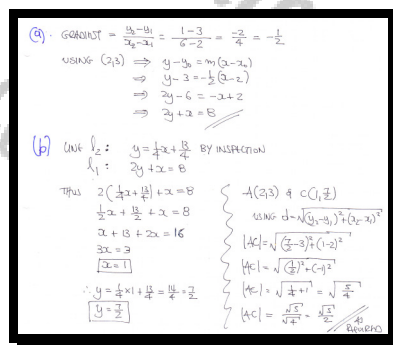 (a). GRADIENT = (y₂-y₁)/(x₂-x₁) = (1-3)/(6-2) = -2/4 = -1/2
USING (2,3) ⇒ y-y₀ = m(x-x₀)
⇒ y-3 = -1/2(x-2)
⇒ 2y-6 = -x+2
⇒ 2y+x = 8
(b) LINE l₂: y = 1/4x + 13/4 BY INSPECTION
l₁: 2y+x = 8
THUS 2(1/4x + 13/4) + x = 8
1/2x + 13/2 + x = 8
x + 13 + 2x = 16
3x = 3
x = 1
∴ y = 1/4×1 + 13/4 = 14/4 = 7/2
y = 7/2
A(2,3) & C(1,7/2)
USING d = √((y₂-y₁)²+(x₂-x₁)²)
|AC| = √((7/2-3)²+(1-2)²)
|AC| = √((1/2)²+(-1)²)
|AC| = √(1/4+1) = √(5/4)
|AC| = √5/√4 = √5/2
AS REQUIRED